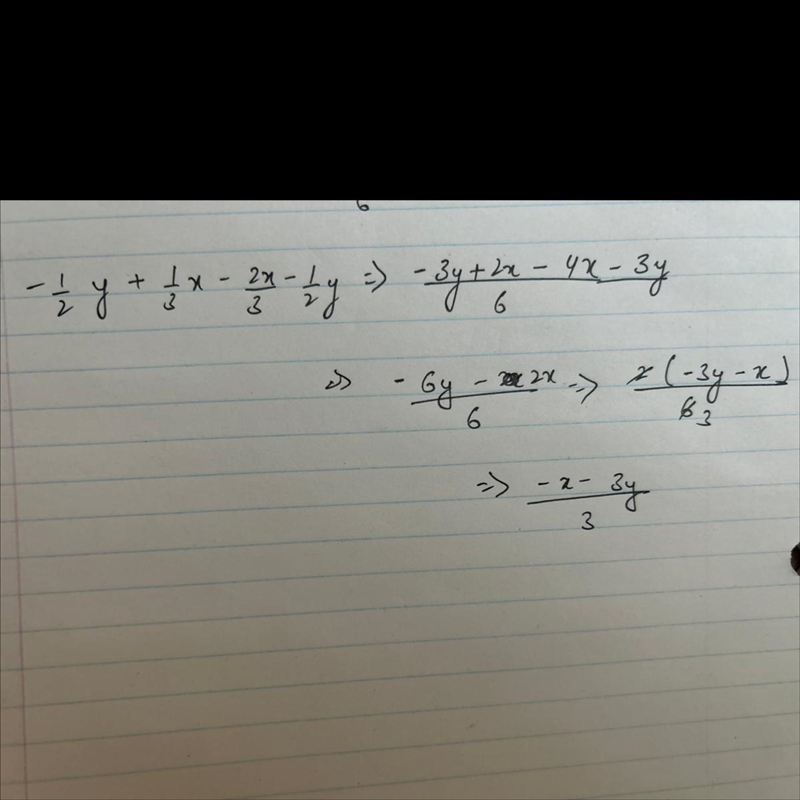 6
-1/2 y + 1/3 x - 2x/3 - 1/2 y => (-3y + 2x - 4x - 3y)/6
=> (-6y - 2x)/6 => 2(-3y - x)/6 3
=> (-x - 3y)/3